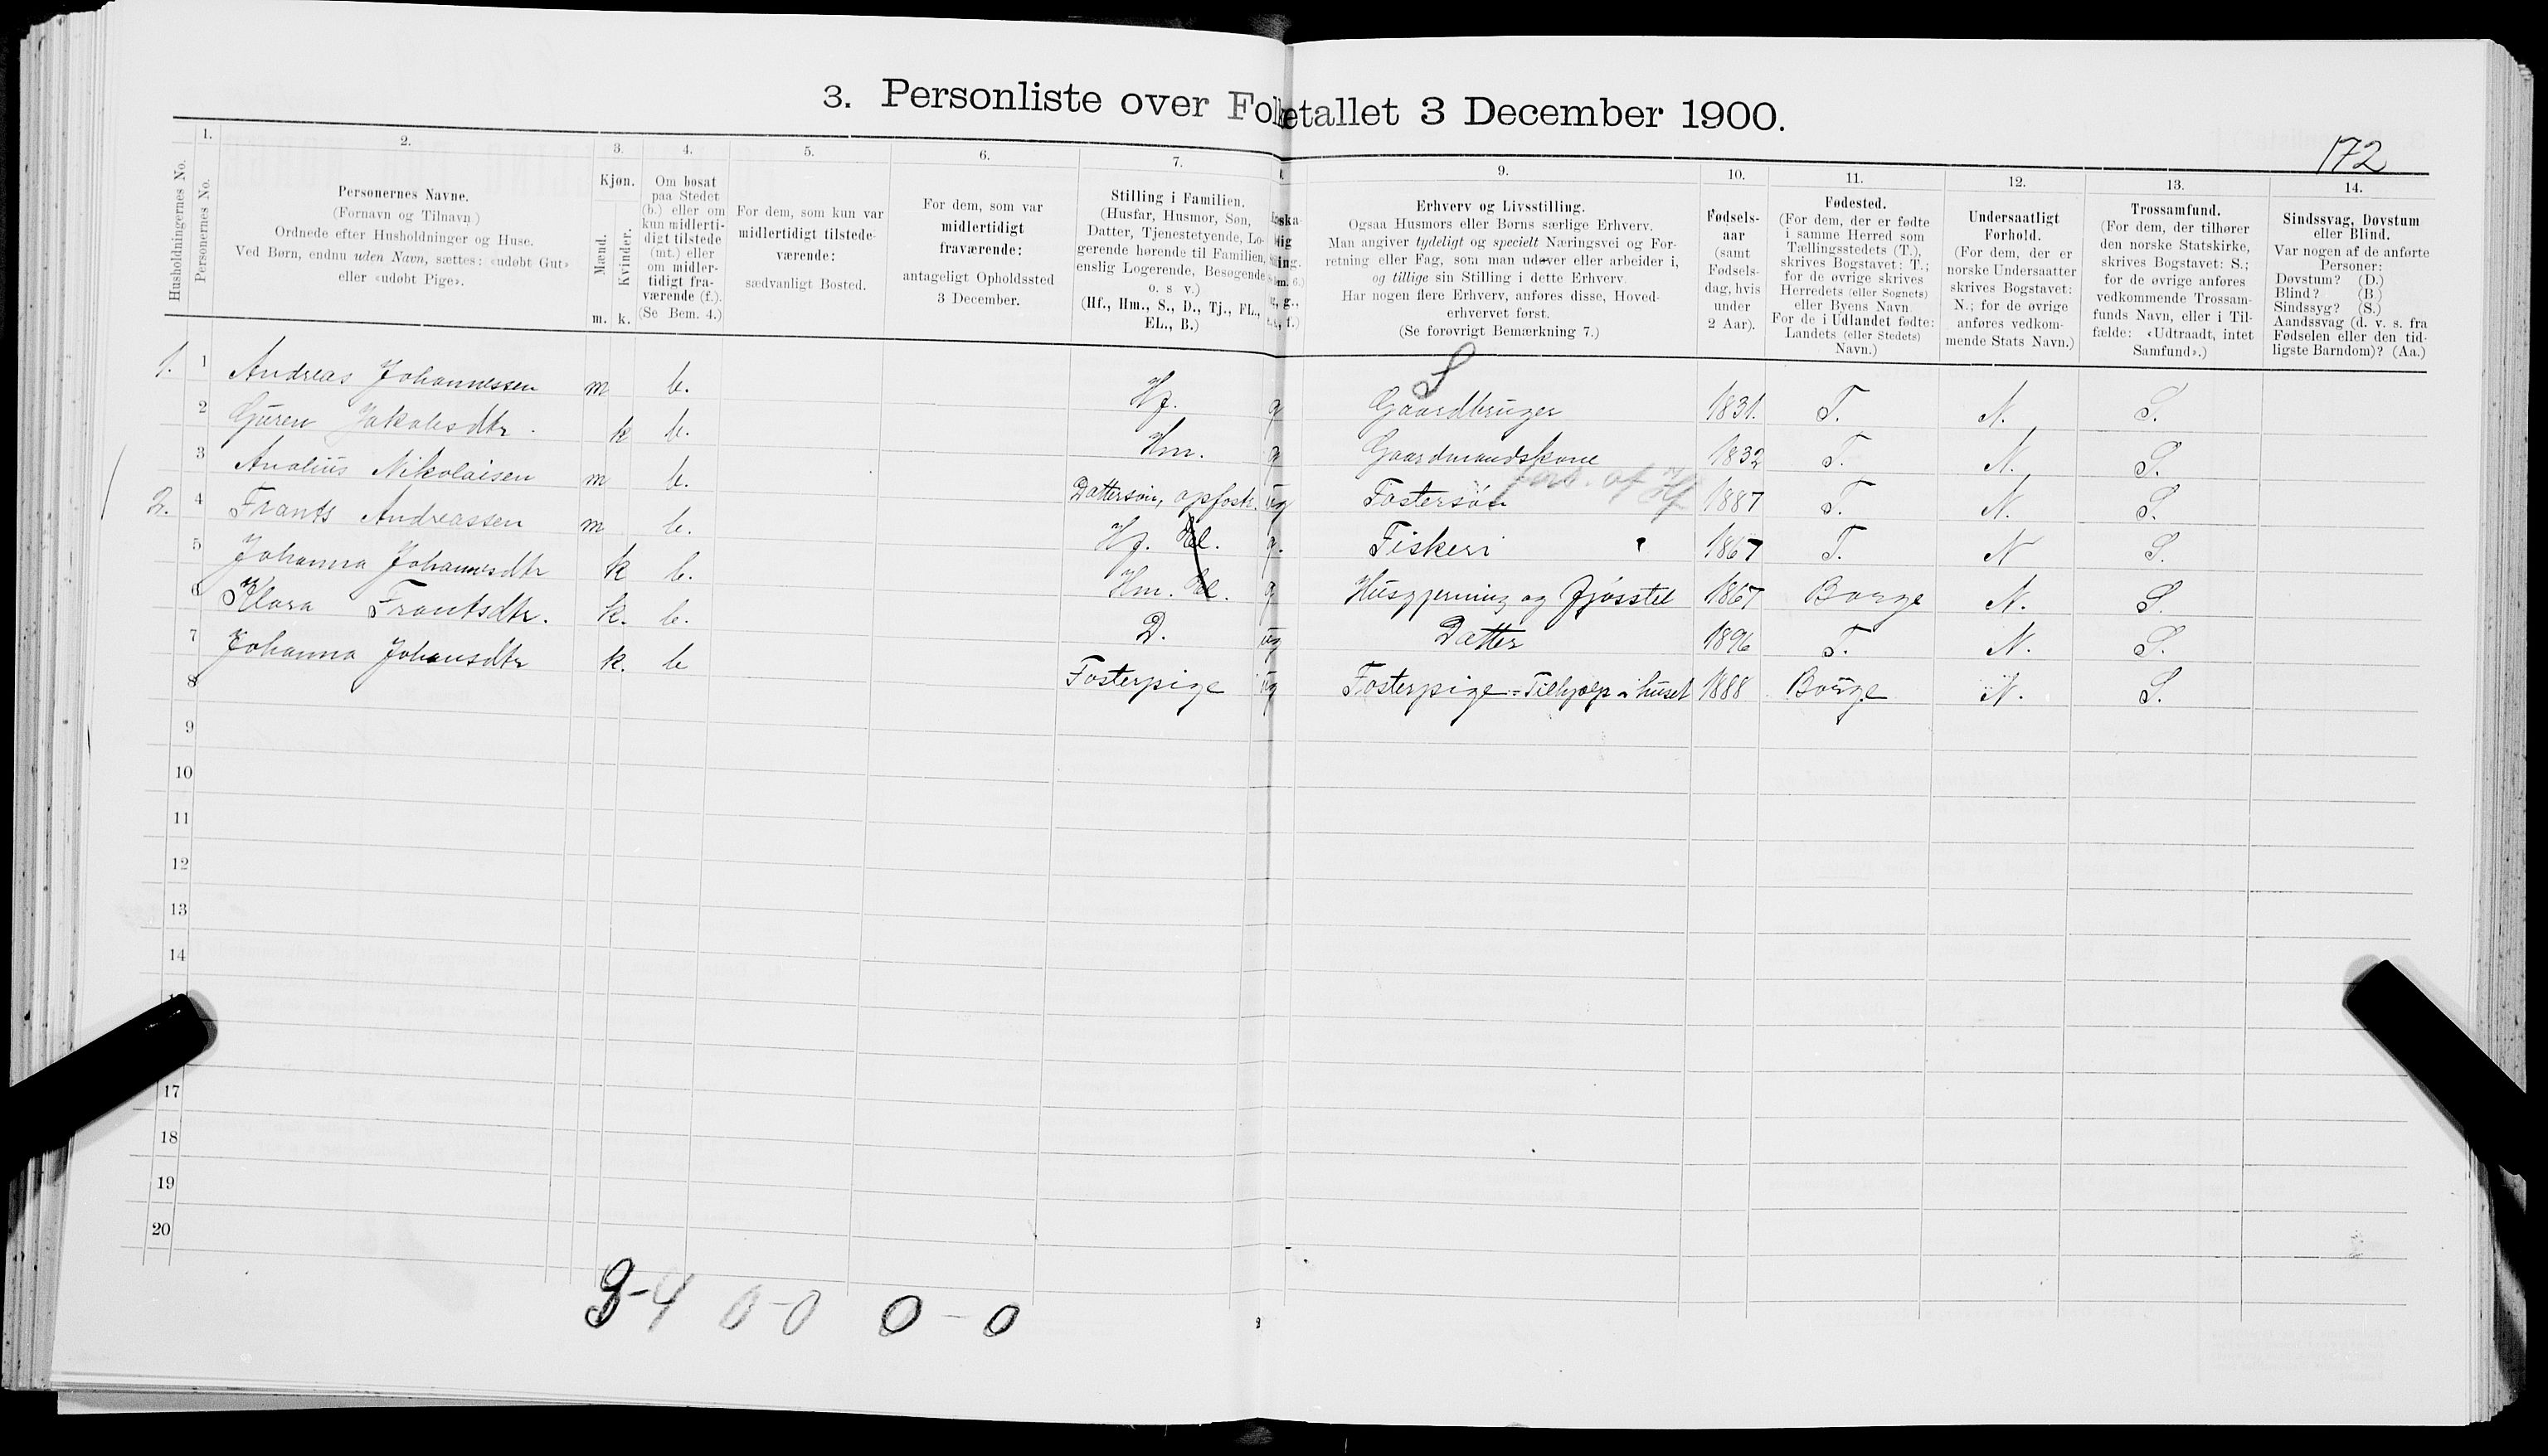 3. Personliste over Folketallet 3 December 1900.
172
1.
2.
3.
4.
5.
6.
7.
9.
10.
11.
12.
13.
14.
Husholdningernes No.
Personernes No.
Personernes Navne.
(Fornavn og Tilnavn.)
Ordnede efter Husholdninger og Huse.
Ved Børn, endnu uden Navn, sættes: «udøbt Gut»
eller «udøbt Pige».
Kjøn.
Mænd.
Kvinder.
m. k.
Om bosat
paa Stedet
(b.) eller om
kun midlerti-
digt tilstede
(mt.) eller
om midler-
tidigt fra-
værende (f.).
(Se Bem. 4.)
For dem, som kun var
midlertidigt tilstede-
værende:
sædvanligt Bosted.
For dem, som var
midlertidigt
fraværende:
antageligt Opholdssted
3 December.
Stilling i Familien.
(Husfar, Husmor, Søn,
Datter, Tjenestetyende, Lo-
gerende hørende til Familien,
enslig Logerende, Besøgende
o. s v.)
(Hf., Hm., S., D., Tj., FL.,
EL., B.)
Erhverv og Livsstilling.
Ogsaa Husmors eller Børns særlige Erhverv.
Man angiver tydeligt og specielt Næringsvei og For-
retning eller Fag, som man udøver eller arbeider i,
og tillige sin Stilling i dette Erhverv.
Har nogen flere Erhverv, anføres disse, Hoved-
erhvervet først.
(Se forøvrigt Bemærkning 7.)
Fødsels-
aar
(samt
Fødsels-
dag, hvis
under
2 Aar).
Fødested.
(For dem, der er fødte
i samme Herred som
Tællingsstedets (T.),
skrives Bogstavet: T.;
for de øvrige skrives
Herredets (eller Sognets)
eller Byens Navn.
For de i Udlandet fødte:
Landets (eller Stedets)
Navn.)
Undersaatligt
Forhold.
(For dem, der er
norske Undersaatter
skrives Bogstavet:
N.; for de øvrige
anføres vedkom-
mende Stats Navn.)
Trossamfund.
(For dem, der tilhører
den norske Statskirke,
skrives Bogstavet: S.;
for de øvrige anføres
vedkommende Trossam-
funds Navn, eller i Til-
fælde: «Udtraadt, intet
Samfund».)
Sindssvag, Døvstum
eller Blind.
Var nogen af de anførte
Personer:
Døvstum? (D.)
Blind? (B.)
Sindssyg? (S.)
Aandssvag (d. v. s. fra
Fødselen eller den tid-
ligste Barndom)? (Aa.)
S
1. 1 Andreas Johannessen m b. Hf. g Gaardbruger 1831. T. N. S.
2 Guren Jakobsdtr. k b. Hm. g Gaardmandskone 1832 T. N. S.
3 Analius Nikolaisen m b. Dattersøn, opfostr. ug Fostersøn fors. af Hf 1887 T. N. S.
2. 4 Frants Andreassen m b. Hf. El. g. Fiskeri 1867 T. N S.
5 Johanna Johannesdtr k b. Hm. El. g Husgjerning og Fjøsstel 1867 Borge N. S.
6 Klara Frantsdtr. k. b. D. ug Datter 1896 T. N. S.
7 Johanna Johansdtr k. b Fosterpige ug Fosterpige = Tilhjælp i huset 1888 Borge N. S.
8
9
10
11
12
13
14
17
18
19
20
3-4 0-0 0-0